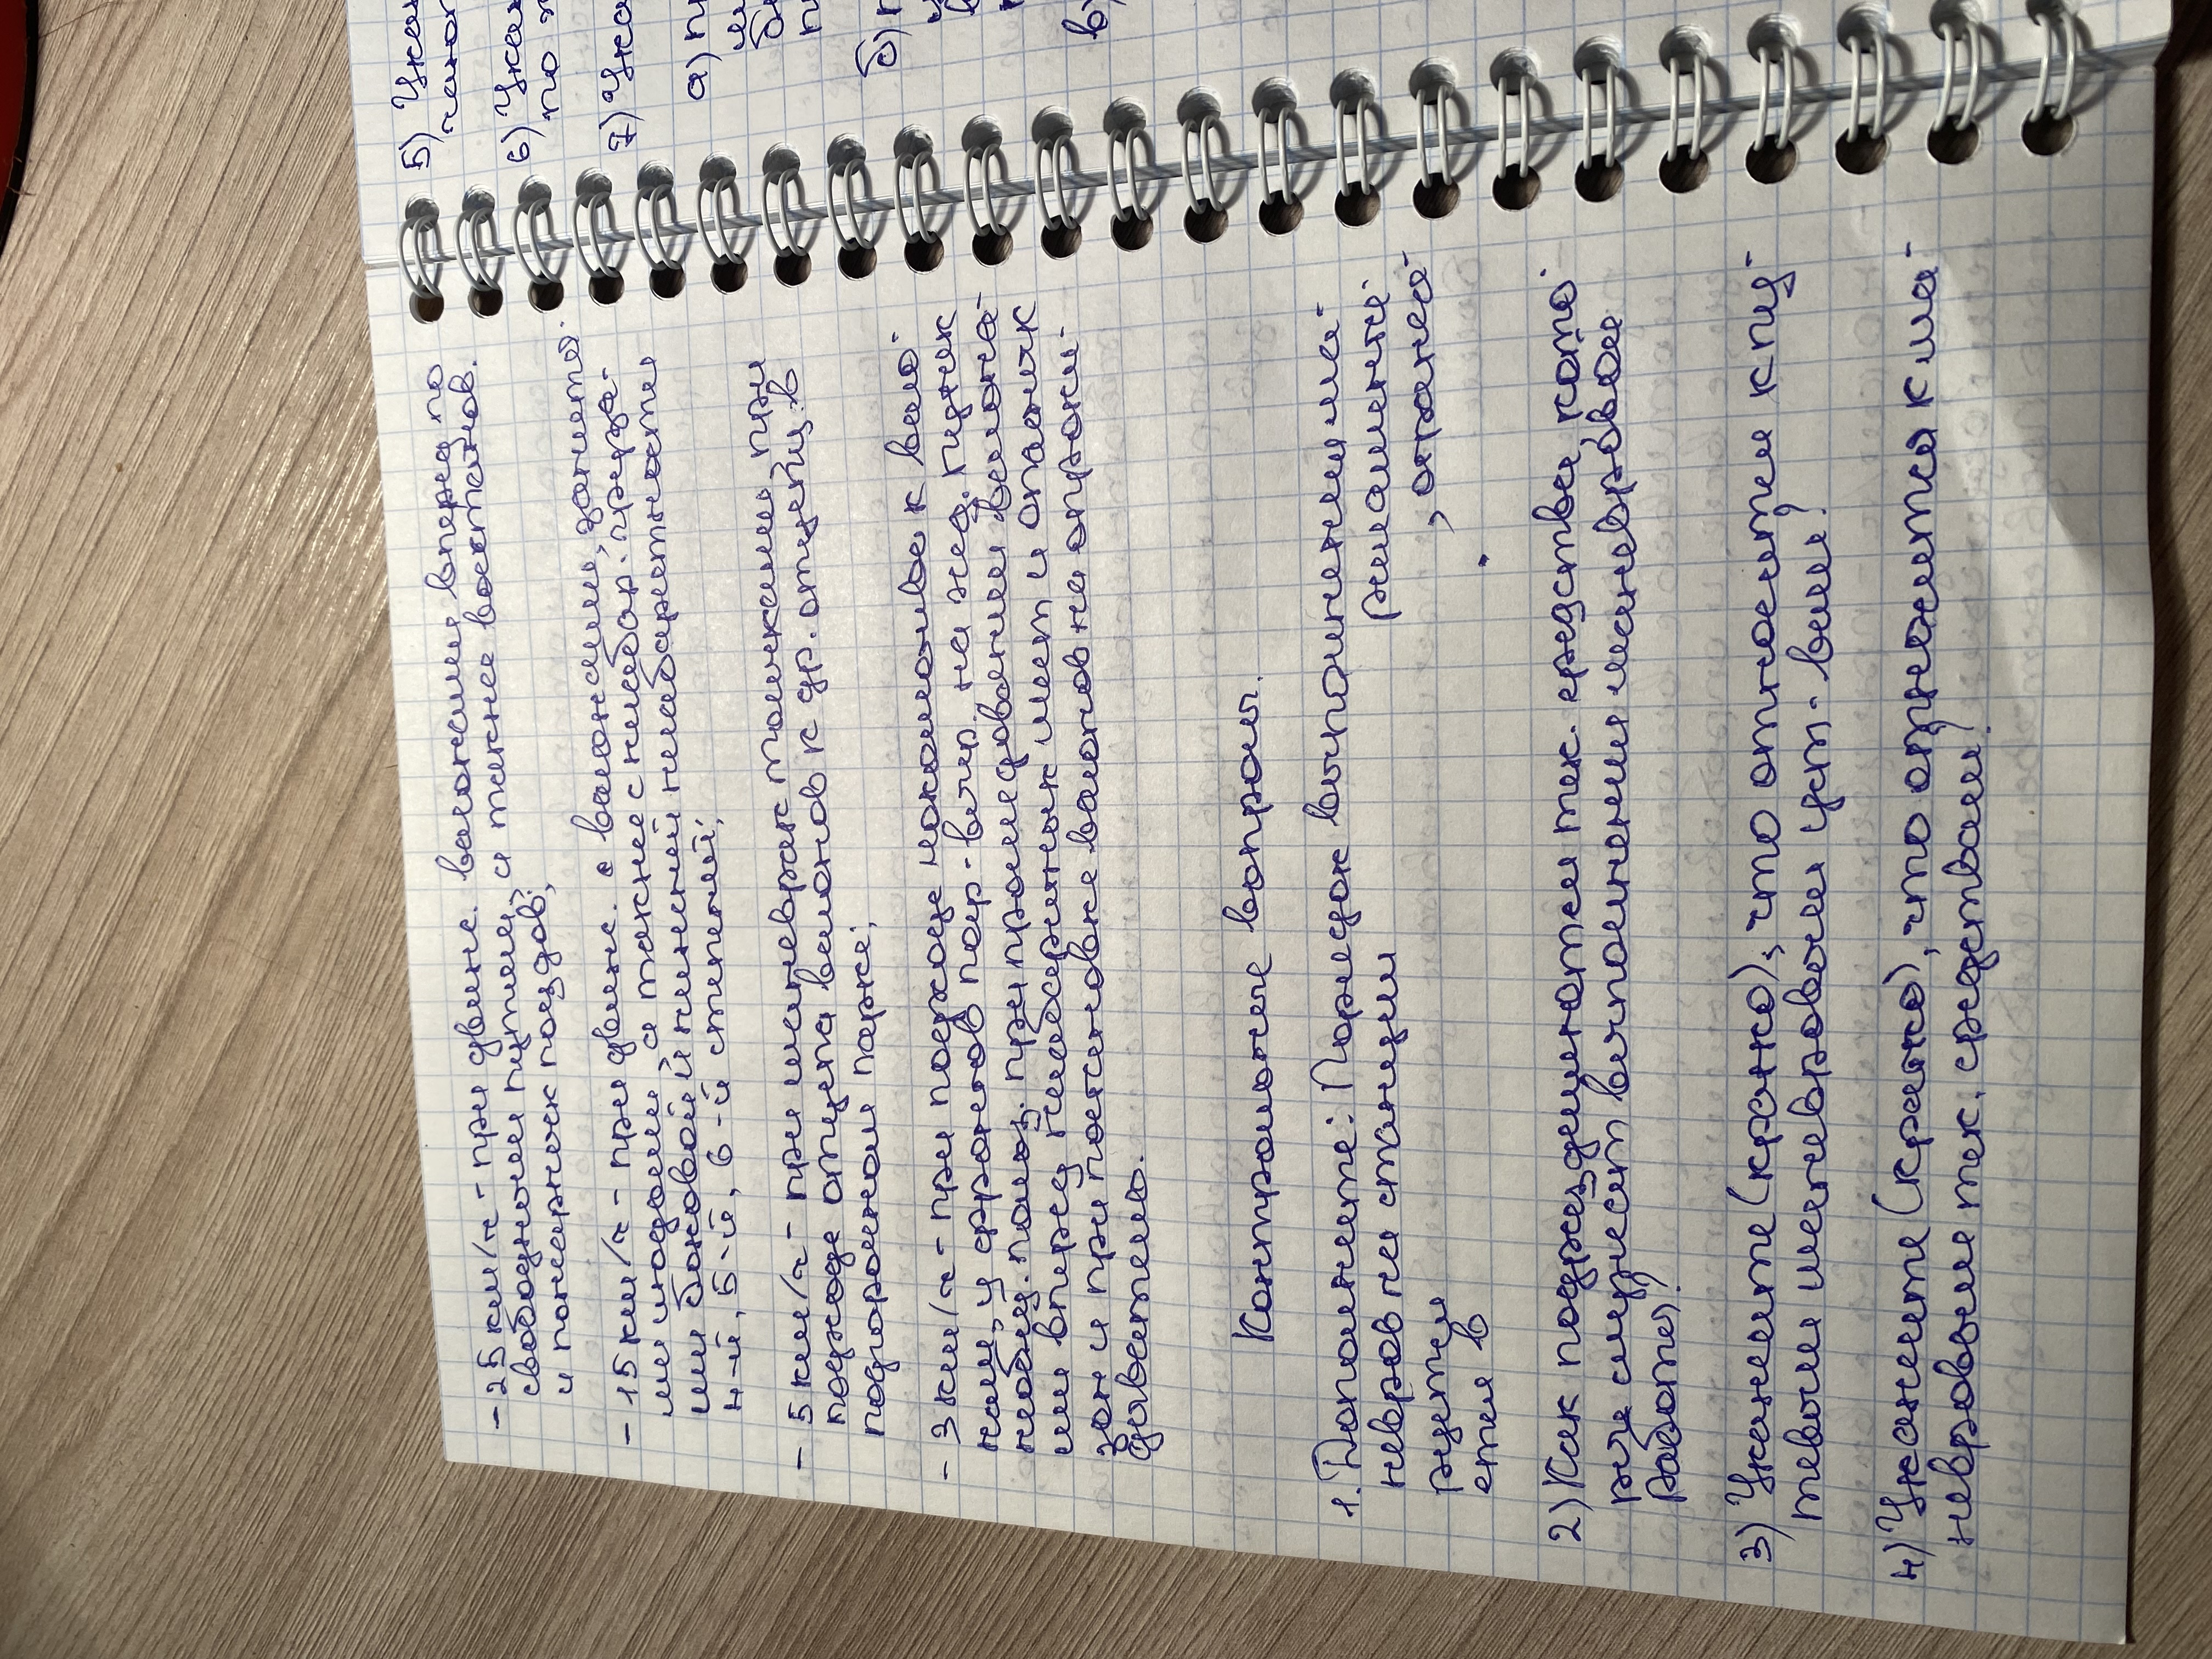 - 25 км/ч - при движ. вагонами вперед по
свободным путям, а также восстанов.
и пожарных поездов;
- 15 км/ч - при движ. с вагонами, занятыми
людьми, а также с негабар. груза-
ми боковой и нижней негабаритности
4-й, 5-й, 6-й степеней;
- 5 км/ч - при маневрах толчками, при
подходе отцепа вагонов к др. отцепу в
подгорочном парке;
- 3 км/ч - при подходе локомотива к ваго-
нам, у фронтов погр.-выгр. на жд. путях
необщ. польз. при проследовании вагона-
ми вперед негабаритных мест и опасных
зон и при постановке вагонов на опроки-
дователь.
Контрольные вопросы.
1. Дополните: Порядок выполнения ма-
невров на станции регламенти-
руется , отража-
ется в .
2) Как подразделяются тех. средства кото-
рые служат выполнения маневровые
работы?
3) Укажите (кратко), что относится к пу-
тевым маневровым уст-вам?
4) Укажите (кратко), что относится к ма-
невровым тех. средствам?
5) Ука
6) Ука
по
7) Ука
а) п
б) п
в)